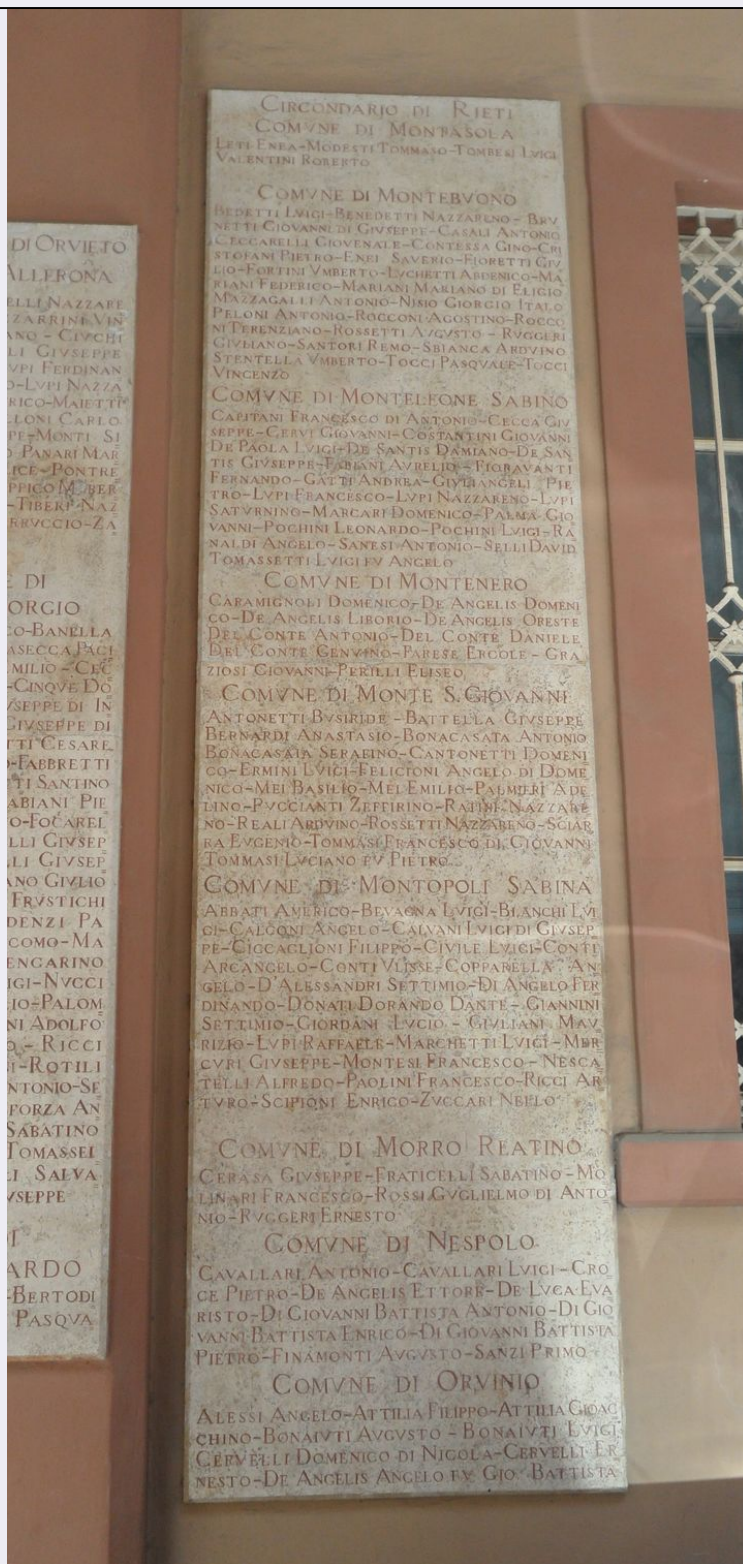 DI ORVIETO
ALLERONA
ELLI NAZZARE
ZZARRINI VIN
ANO - CIVCHI
LI GIVSEPPE
VPI FERDINAN
O-LVPI NAZZA
RICO-MAIETTI
LLONI CARLO
PE-MONTI SI
PANARI MAR
LICE-PONTRE
-TIBERI-NAZ
ERRVCCIO-ZA
E DI
ORGIO
CO-BANELLA
ASECCA PACI
EMILIO-CEC
-CINQVE DO
VSEPPE DI IN
GIVSEPPE DI
TTI CESARE
O-FABBRETTI
TI SANTINO
ABIANI PIE
O-FOCAREL
LLI GIVSEP
LI GIVSEP
ANO GIVLIO
FRVSTICHI
DENZI PA
COMO-MA
ENGARINO
IGI-NVCCI
IO-PALOM
NI ADOLFO
O - RICCI
I-ROTILI
NTONIO-SE
FORZA AN
SABATINO
TOMASSEI
LI SALVA
VSEPPE
DI
ARDO
-BERTODI
PASQVA
CIRCONDARIO DI RIETI
COMVNE DI MONTASOLA
LETI ENEA-MODESTI TOMMASO-TOMBESI LVIGI
VALENTINI ROBERTO
COMVNE DI MONTEBVONO
BEDETTI LVIGI-BENEDETTI NAZZARENO-BRV
NETTI GIOVANNI DI GIVSEPPE-CASALI ANTONIO
CECCARELLI GIOVENALE-CONTESSA GINO-CRI
STOFANI PIETRO-ENEI SAVERIO-FIORETTI GIV
LIO-FORTINI VMBERTO-LVCHETTI ARDENICO-MA
RIANI FEDERICO-MARIANI MARIANO DI ELIGIO
MAZZAGALLI ANTONIO-NISIO GIORGIO ITALO
PELONI ANTONIO-ROCCONI AGOSTINO-ROCCO
NI TERENZIANO-ROSSETTI AVGVSTO - RVGGERI
GIVLIANO-SANTORI REMO-SBIANCA ARDVINO
STENTELLA VMBERTO-TOCCI PASQVALE-TOCCI
VINCENZO
COMVNE DI MONTELEONE SABINO
CAPITANI FRANCESCO DI ANTONIO-CECCA GIV
SEPPE-CERVI GIOVANNI-COSTANTINI GIOVANNI
DE PAOLA LVIGI-DE SANTIS DAMIANO-DE SAN
TIS GIVSEPPE-FABIANI AVRELIO-FIORAVANTI
FERNANDO-GATTI ANDREA-GIVLIANGELI PIE
TRO-LVPI FRANCESCO-LVPI NAZZARENO-LVPI
SATVRNINO-MARCARI DOMENICO-PALMA GIO
VANNI-POCHINI LEONARDO-POCHINI LVIGI-RA
NALDI ANGELO-SANESI ANTONIO-SELLI DAVID
TOMASSETTI LVIGI FV ANGELO
COMVNE DI MONTENERO
CARAMIGNOLI DOMENICO-DE ANGELIS DOMENI
CO-DE ANGELIS LIBORIO-DE ANGELIS ORESTE
DEL CONTE ANTONIO-DEL CONTE DANIELE
DEL CONTE GENVINO-PARESE ERCOLE-GRA
ZIOSI GIOVANNI-PERILLI ELISEO
COMVNE DI MONTE S.GIOVANNI
ANTONETTI BVSIRIDE-BATTELLA GIVSEPPE
BERNARDI ANASTASIO-BONACASATA ANTONIO
BONACASATA SERAFINO-CANTONETTI DOMENI
CO-ERMINI LVIGI-FELICIONI ANGELO DI DOME
NICO-MEI BASILIO-MEI EMILIO-PALMIERI ADE
LINO-PVCCIANTI ZEFFIRINO-RATINI NAZZARE
NO-REALI ARDVINO-ROSSETTI NAZZARENO-SCIAR
RA EVGENIO-TOMMASI FRANCESCO DI GIOVANNI
TOMMASI LVCIANO FV PIETRO
COMVNE DI MONTOPOLI SABINA
ABBATI AMERICO-BEVAGNA LVIGI-BIANCHI LVI
GI-CALCONI ANGELO-CALVANI LVIGI DI GIVSEP
PE-CICCAGLIONI FILIPPO-CIVILE LVIGI-CONTI
ARCANGELO-CONTI VLISSE-COPPARELLA AN
GELO-D'ALESSANDRI SETTIMIO-DI ANGELO FER
DINANDO-DONATI DORANDO DANTE-GIANNINI
SETTIMIO-GIORDANI LVCIO - GIVLIANI MAV
RIZIO-LVPI RAFFAELE-MARCHETTI LVIGI-MER
CVRI GIVSEPPE-MONTESI FRANCESCO - NESCA
TELLI ALFREDO-PAOLINI FRANCESCO-RICCI AR
TVRO-SCIPIONI ENRICO-ZVCCARI NELLO
COMVNE DI MORRO REATINO
CERASA GIVSEPPE-FRATICELLI SABATINO-MO
LINARI FRANCESCO-ROSSI GVGLIELMO DI ANTO
NIO-RVGGERI ERNESTO
COMVNE DI NESPOLO
CAVALLARI ANTONIO-CAVALLARI LVIGI-CRO
CE PIETRO-DE ANGELIS ETTORE-DE LVCA EVA
RISTO-DI GIOVANNI BATTISTA ANTONIO-DI GIO
VANNI BATTISTA ENRICO-DI GIOVANNI BATTISTA
PIETRO-FINAMONTI AVGVSTO-SANZI PRIMO
COMVNE DI ORVINIO
ALESSI ANGELO-ATTILIA FILIPPO-ATTILIA GIOAC
CHINO-BONAIVTI AVGVSTO-BONAIVTI LVIGI
CERVELLI DOMENICO DI NICOLA-CERVELLI ER
NESTO-DE ANGELIS ANGELO FV GIO. BATTISTA